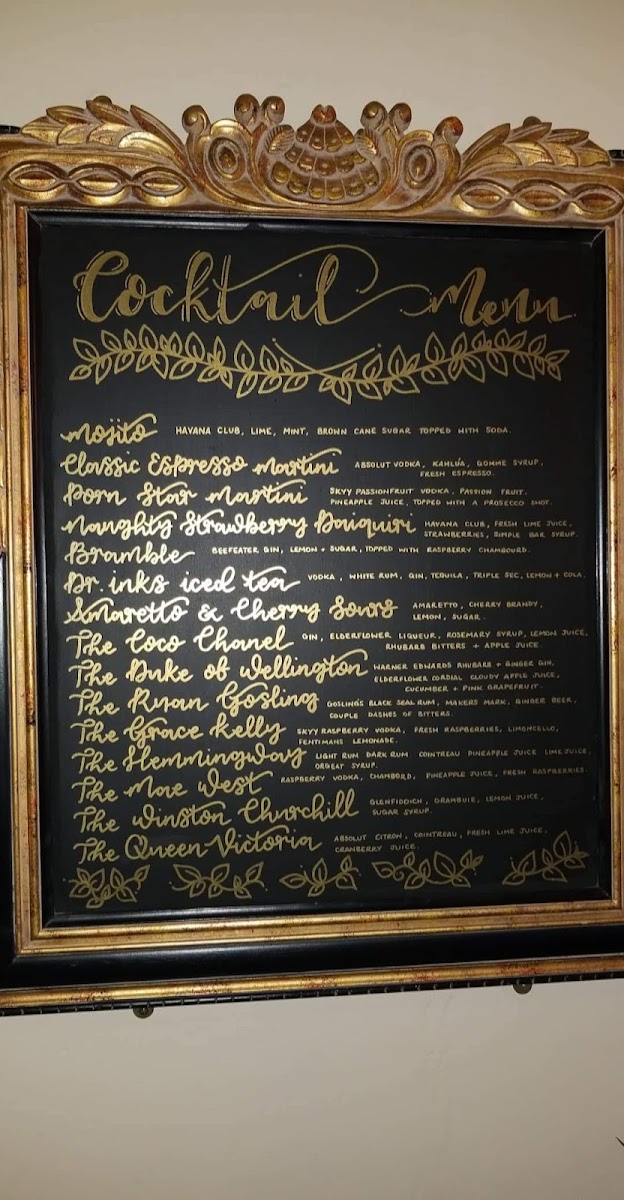 Cocktail Menu
Mojito HAVANA CLUB, LIME, MINT, BROWN CANE SUGAR TOPPED WITH SODA.
Classic Espresso Martini ABSOLUT VODKA, KAHLÚA, GOMME SYRUP,
FRESH ESPRESSO.
Porn Star Martini SKYY PASSIONFRUIT VODKA, PASSION FRUIT,
PINEAPPLE JUICE, TOPPED WITH A PROSECCO SHOT.
Naughty Strawberry Daiquiri HAVANA CLUB, FRESH LIME JUICE,
STRAWBERRIES, SIMPLE BAR SYRUP.
Bramble BEEFEATER GIN, LEMON + SUGAR, TOPPED WITH RASPBERRY CHAMBOURD.
Dr. inks iced tea VODKA, WHITE RUM, GIN, TEQUILA, TRIPLE SEC, LEMON + COLA.
Amaretto & Cherry Sours AMARETTO, CHERRY BRANDY,
LEMON, SUGAR.
The Coco Chanel GIN, ELDERFLOWER LIQUEUR, ROSEMARY SYRUP, LEMON JUICE,
RHUBARB BITTERS + APPLE JUICE.
The Duke of Wellington WARNER EDWARDS RHUBARB + GINGER GIN,
ELDERFLOWER CORDIAL CLOUDY APPLE JUICE,
CUCUMBER + PINK GRAPEFRUIT.
The Ryan Gosling GOSLING'S BLACK SEAL RUM, MAKERS MARK, GINGER BEER,
COUPLE DASHES OF BITTERS.
The Grace Kelly SKYY RASPBERRY VODKA, FRESH RASPBERRIES, LIMONCELLO,
FENTIMANS LEMONADE.
The Hemmingway LIGHT RUM DARK RUM COINTREAU PINEAPPLE JUICE LIME JUICE,
ORGEAT SYRUP.
The Mae West RASPBERRY VODKA, CHAMBORD, PINEAPPLE JUICE, FRESH RASPBERRIES.
The Winston Churchill GLENFIDDICH, DRAMBUIE, LEMON JUICE,
SUGAR SYRUP.
The Queen Victoria ABSOLUT CITRON, COINTREAU, FRESH LIME JUICE,
CRANBERRY JUICE.